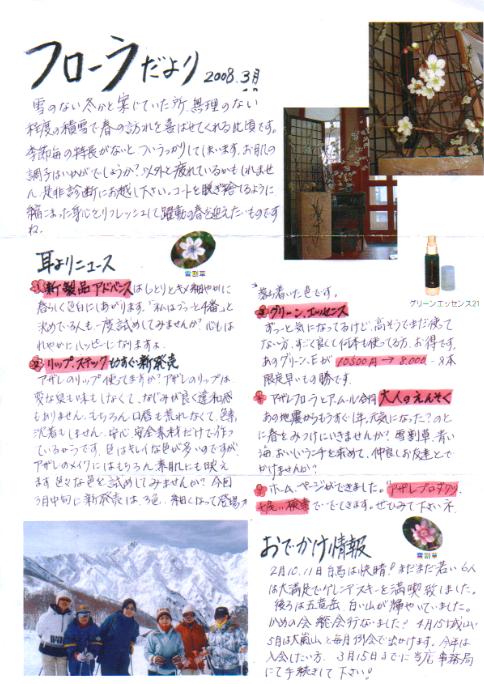 フローラだより 2008.3月
雪のない冬かと案じていた所、無理のない
程度の積雪で春の訪れを喜ばせてくれる此頃です。
季節毎の特長がないと、ついうっかりしてしまいます。お肌の
調子はいかがでしょうか?以外と疲れているかもしれませ
ん。是非診断にお越し下さい。コートを脱ぎ捨てるように
縮こまった身心をリフレッシュして躍動の春を迎えたいものです
ね。
雪割草
耳よりニュース
新製品アドバンスはしっとりとキメ細やかに
決めている人も一度試してみませんか?心もは
れやかにハッピーになりますよ。
リップスティックもうすぐ新発売
アザレのリップ使ってますか?アザレのリップは
変な臭いもしなくて、なじみが良く違和感
もありません。もちろん口唇も荒れなくて、色素
沈着もしません。安心、安全素材だけで作っ
ているからです。色はキレイな色が多いのですが
アザレのメイクにはもちろん素肌にも映え
ます。色々な色を試してみませんか?今回
3月中旬に新発売は、3色、細くなって登場
グリーンエッセンス21
落ち着いた色です。
グリーン.エッセンス
ずっと気になってるけど、高そうでまだ使って
ない方、すごく良くて何本も使ってる方、お得です。
あのグリーン.Eが 10500円→8,000.-
限定早いもの勝です。
アザレフローラとアムール合同 大人のえんそく
あの地震からもうすぐ1年。元気になった?のと
に春をみつけにいきませんか?雪割草、青い
海おいしいランチを求めて、仲良しお友達とで
かけませんか?
ホームページができました。「アザレプロダクツ
で検索できます。ぜひみて下さいネ
雪割草
おでかけ情報
2月10、11日白馬は快晴!まだまだ若い6人
は大満足でゲレンデスキーを満喫致しました。
後ろは五竜岳 白い山が輝やいていました。
総会行ないました。4月15日
5月は と毎月例会で出かけます。今年は
入会したい方、3月15日までに当店事務局
にて手続きして下さい!